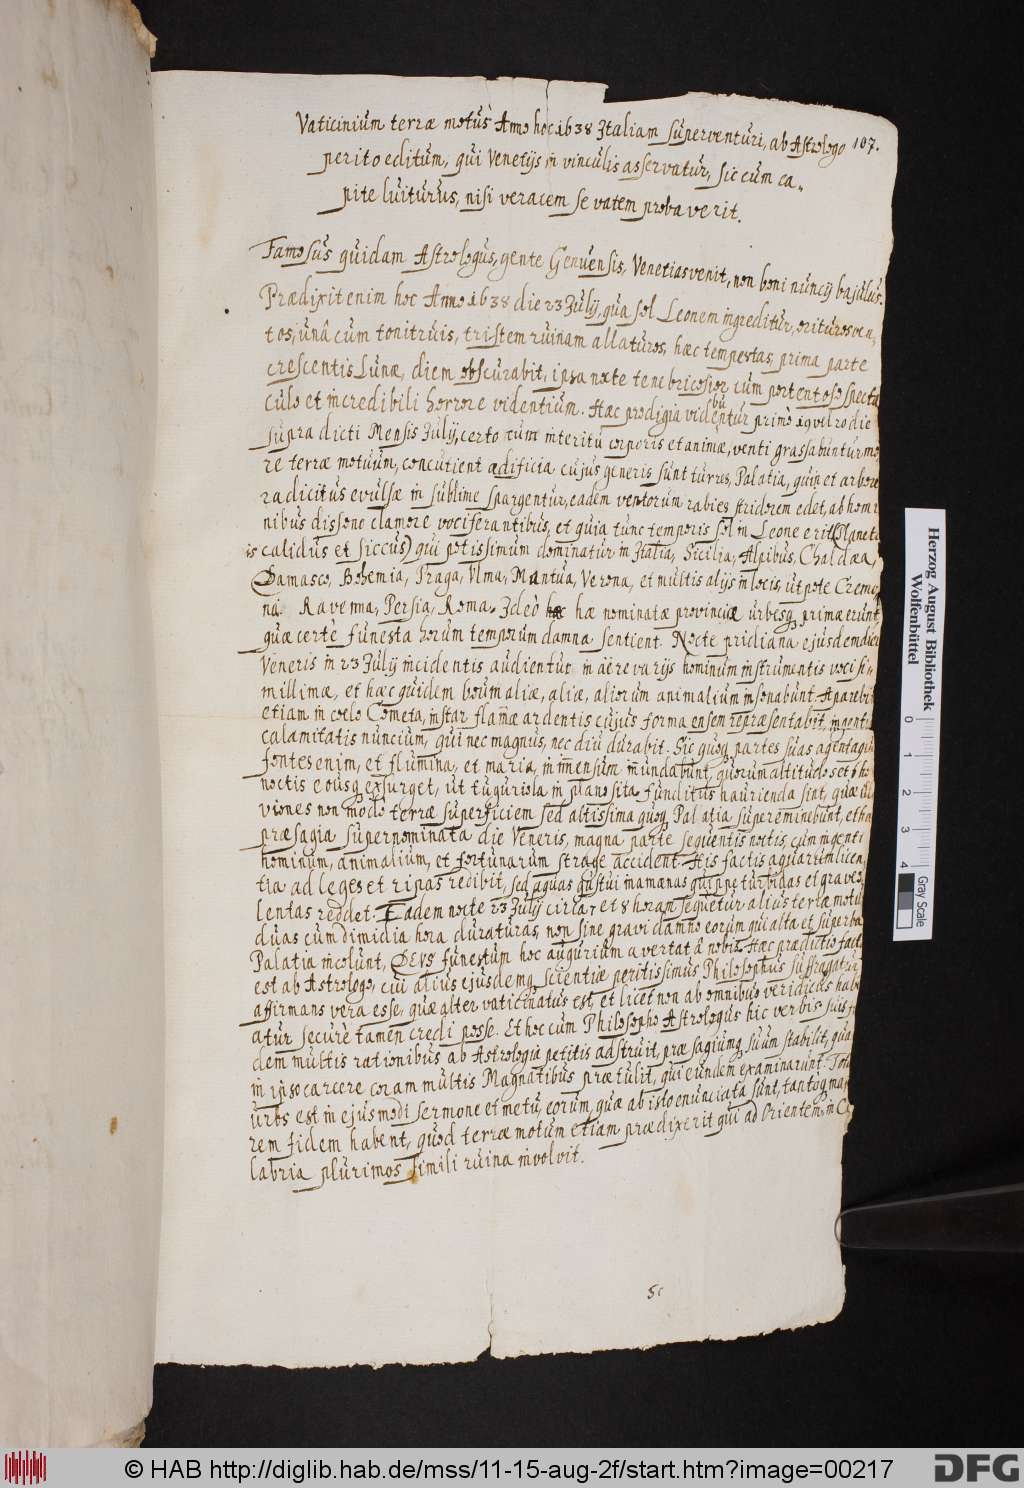 Vaticinium terræ motus Anno hoc 1638 Italiam superventuri, ab Astrologo 107.
perito editum, qui Venetijs in vinculis asservatur, sic cum ca-
pite luiturus, nisi veracem se vatem probaverit.
Famosus quidam Astrologus, gente Genuensis, Venetias venit, non boni nuncij bajulus.
Prædixit enim hoc Anno 1638 die 23 Julij, qua sol Leonem ingreditur, orituros ven-
tos, unâ cum tonitruis, tristem ruinam allaturos, hæc tempestas, prima parte
crescentis Lunæ, diem obscurabit, ipsa nocte tenebricosior cum portentoso specta
culo et incredibili horrore videntium. Hæc prodigia videbuntur primò
supra dicti Mensis Julij, certo cum interitu corporis et animæ, venti grassabuntur mo
re terræ motuum, concutient ædificia cujus generis sunt turres, Palatia, quin et arbore
radicitus evulsæ in sublime spargentur, eadem ventorum rabies stridorem edet, ab homi
nibus dissono clamore vociferantibus, et quia tunc temporis sol in Leone erit (Planeta
is calidus et siccus) qui potissimum dominatur in Italia, Sicilia, Alpibus, Chaldæa,
Damasco, Bohemia, Praga, Ulma, Mantua, Verona, et multis alijs in locis, utpote Cremo
na Ravenna, Persia, Roma. Ideò hæ nominatæ provinciæ urbesq primæ erunt,
quæ certè funesta horum temporum damna sentient. Nocte pridiana ejusdem diei
Veneris in 23 Julij incidentis audientur in aëre varijs hominum instrumentis voci si-
millimæ, et hæc quidem boum aliæ, aliæ, aliorum animalium insonabunt. Aparebit
etiam in coelo Cometa, instar flamæ ardentis cujus forma ensem repræsentabit, ingentis
calamitatis nuncium, qui nec magnus, nec diu durabit. Sic quoq partes suas agent aquæ
fontes enim, et flumina, et maria, in imensum inundabunt, quorum altitudo set 8 ho
noctis eousq exsurget, ut tuguriola in plano sita funditus haurienda sint, quæ
viones non modo terræ superficiem sed altissima quoq Palatia supereminebunt, et hæ
præsagia supernominata die Veneris, magna parte sequentis noctis, cum ingenti
hominum, animalium, et fortunarum strage accident. His factis aquarum licen,
tia ad leges et ripas redibit, sed aquas gustui inamænas quippe turbidas et graveo
lentas reddet. Eadem nocte 23 Julij circa 7 et 8 horam sequetur alius terræ motu
duas cum dimidia hora duraturas, non sine gravi damno eorum qui alta et superba
Palatia incolunt, DEVS funestum hoc augurium avertat â nobis. Hæc prædictio facta
est ab Astrologo, cui alius ejusdemq scientiæ peritissimus Philosophus suffragatur
affirmans vera esse, quæ alter vaticinatus est, et licet non ab omnibus veridicus habe
atur securè tamen credi posse. Et hoc cum Philosopho Astrologus hic verbis suis fi
dem multis rationibus ab Astrologia petitis adstruit, præsagiumq suum stabilit, qua
in ipso carcere coram multis Magnatibus prætulit, qui eundem examinarunt. Tota
urbs est in ejusmodi sermone et metu, eorum, quæ ab isto enunciata sunt, tantoq ma
rem fidem habent, quod terræ motum etiam prædixerit qui ad Orientem in Ca
labria plurimos simili ruina involvit.
Herzog August Bibliothek
Wolfenbüttel
0 1 2 3 4
Gray Scale
© HAB http://diglib.hab.de/mss/11-15-aug-2f/start.htm?image=00217
DFG